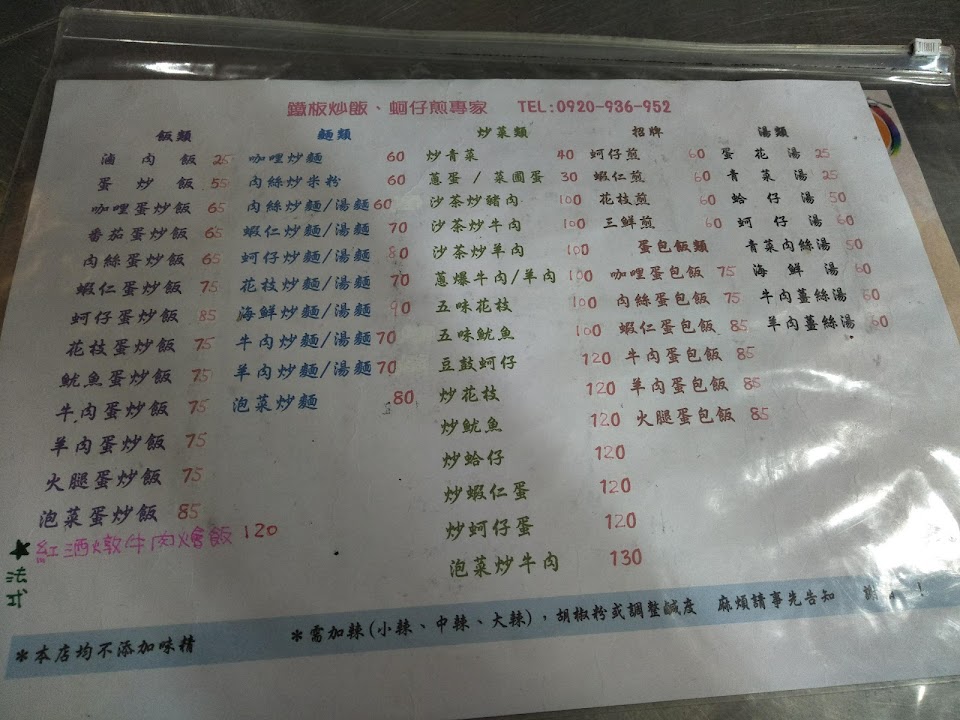 鐵板炒飯、蚵仔煎專家 TEL:0920-936-952
飯類
滷肉飯 25
蛋炒飯 55
咖哩蛋炒飯 65
番茄蛋炒飯 65
肉絲蛋炒飯 65
蝦仁蛋炒飯 75
蚵仔蛋炒飯 85
花枝蛋炒飯 75
魷魚蛋炒飯 75
牛肉蛋炒飯 75
羊肉蛋炒飯 75
火腿蛋炒飯 75
泡菜蛋炒飯 85
★法式 紅酒燉牛肉燴飯 120
麵類
咖哩炒麵 60
肉絲炒米粉 60
肉絲炒麵/湯麵 60
蝦仁炒麵/湯麵 70
蚵仔炒麵/湯麵 80
花枝炒麵/湯麵 70
海鮮炒麵/湯麵 90
牛肉炒麵/湯麵 70
羊肉炒麵/湯麵 70
泡菜炒麵 80
炒菜類
炒青菜 40
蔥蛋/菜圃蛋 30
沙茶炒豬肉 100
沙茶炒牛肉 100
沙茶炒羊肉 100
蔥爆牛肉/羊肉 100
五味花枝 100
五味魷魚 100
豆鼓蚵仔 120
炒花枝 120
炒魷魚 120
炒蛤仔 120
炒蝦仁蛋 120
炒蚵仔蛋 120
泡菜炒牛肉 130
招牌
蚵仔煎 60
蝦仁煎 60
花枝煎 60
三鮮煎 60
蛋包飯類
咖哩蛋包飯 75
肉絲蛋包飯 75
蝦仁蛋包飯 85
牛肉蛋包飯 85
羊肉蛋包飯 85
火腿蛋包飯 85
湯類
蛋花湯 25
青菜湯 25
蛤仔湯 50
蚵仔湯 60
青菜肉絲湯 50
海鮮湯 60
牛肉薑絲湯 60
羊肉薑絲湯 60
*本店均不添加味精 *需加辣(小辣、中辣、大辣),胡椒粉或調整鹹度 麻煩請事先告知 謝 !